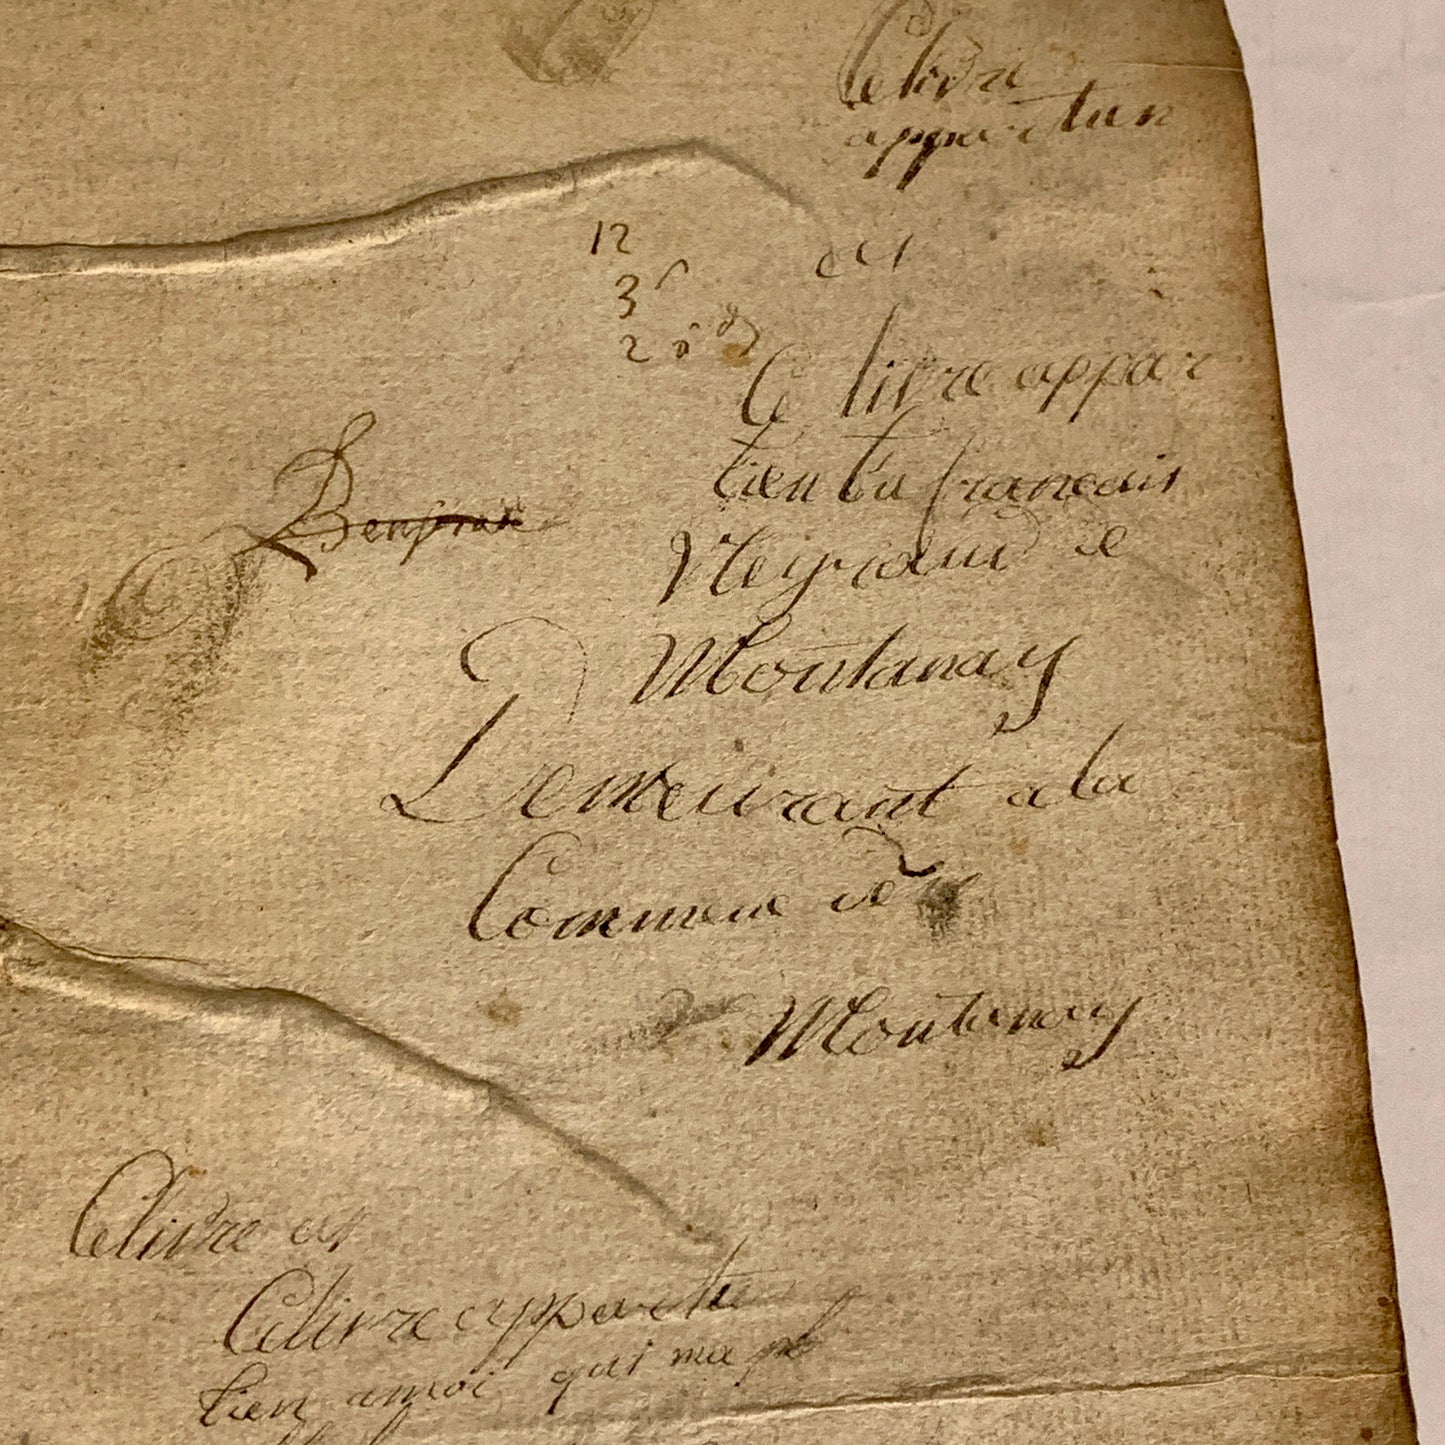 Ce livre
appartien
est
12
3
2
Ce livre appar
tien tu francais
Meyraud de
Montanay
Demeurant a la
Commeue de
Montanay
Ce livre est
Ce livre apparte
tien amoi qui ma